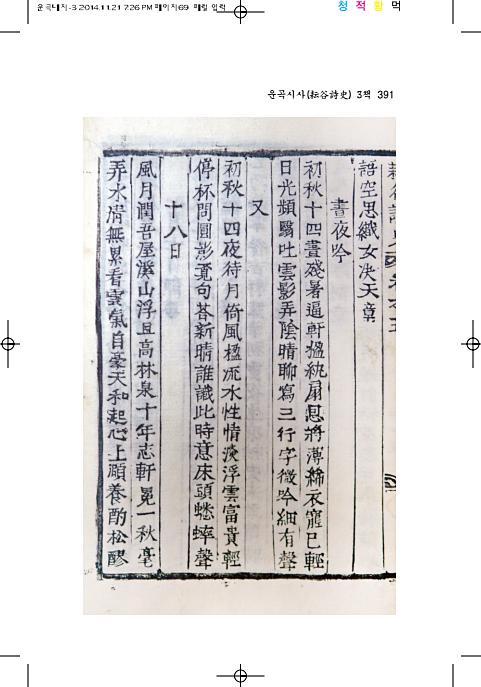 운곡대지-3 2014.11.21 7:26 PM 페이지69 매킬 입력
청 적 황 먹
운곡시사(耘谷詩史) 3책 391
語空思織女決天章
晝夜吟
初秋十四晝殘暑逼軒楹紈扇恩將薄絺衣寵已輕
日光頻翳吐雲影弄陰晴聊寫三行字微吟細有聲
又
初秋十四夜待月倚風楹流水性情淡浮雲富貴輕
停杯問圓影覓句答新晴誰識此時意床頭蟋蟀聲
十八日
風月潤吾屋溪山浮且高林泉十年志軒冕一秋毫
弄水淸無累看雲氣自豪天和起心上頤養酌松醪